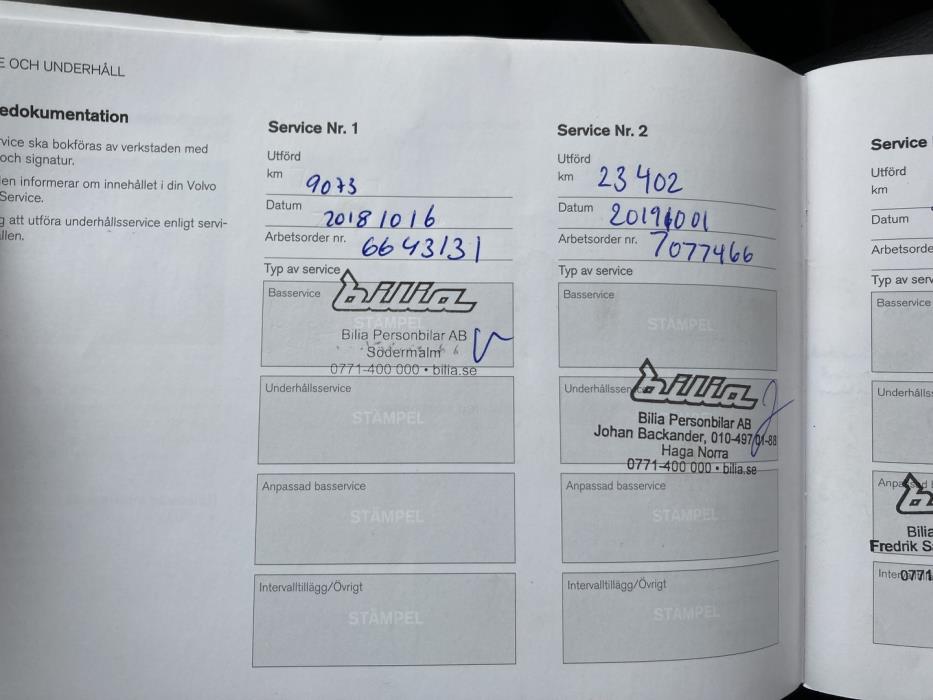 E OCH UNDERHÅLL
edokumentation
vice ska bokföras av verkstaden med
och signatur.
en informerar om innehållet i din Volvo
Service.
g att utföra underhållsservice enligt servi-
llen.
Service Nr. 1
Utförd
km 9073
Datum 20181016
Arbetsorder nr. 6643131
Typ av service
Basservice
STÄMPEL
bilia
Bilia Personbilar AB
Södermalm
0771-400 000 • bilia.se
Underhållsservice
STÄMPEL
Anpassad basservice
STÄMPEL
Intervalltillägg/Övrigt
STÄMPEL
Service Nr. 2
Utförd
km 23 402
Datum 20191001
Arbetsorder nr. 7077466
Typ av service
Basservice
STÄMPEL
Underhållsser
bilia
Bilia Personbilar AB
Johan Backander, 010-497 01-88
Haga Norra
0771-400 000 • bilia.se
Anpassad basservice
STÄMPEL
Intervalltillägg/Övrigt
STÄMPEL
Service
Utförd
km
Datum
Arbetsorde
Typ av serv
Basservice
Underhålls
Anpa
Bilia
Fredrik S
Inter
0771